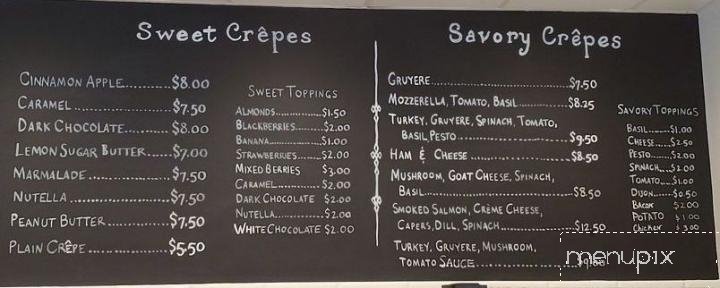 Sweet Crêpes
CINNAMON APPLE.......$8.00
CARAMEL....................$7.50
DARK CHOCOLATE.......$8.00
LEMON SUGAR BUTTER....$7.00
MARMALADE................$7.50
NUTELLA......................$7.50
PEANUT BUTTER............$7.50
PLAIN CRÊPE................$5.50
SWEET TOPPINGS
ALMONDS..........$1.50
BLACKBERRIES......$2.00
BANANA............$1.00
STRAWBERRIES......$2.00
MIXED BERRIES $3.00
CARAMEL...........$2.00
DARK CHOCOLATE $2.00
NUTELLA...........$2.00
WHITE CHOCOLATE $2.00
Savory Crêpes
GRUYERE..............................$7.50
MOZZERELLA, TOMATO, BASIL..........$8.25
TURKEY, GRUYERE, SPINACH, TOMATO,
BASIL, PESTO..........................$9.50
HAM & CHEESE.......................$8.50
MUSHROOM, GOAT CHEESE, SPINACH,
BASIL..................................$8.50
SMOKED SALMON, CRÈME CHEESE,
CAPERS, DILL, SPINACH................$12.50
TURKEY, GRUYERE, MUSHROOM,
TOMATO SAUCE......................
SAVORY TOPPINGS
BASIL........$1.00
CHEESE......$2.50
PESTO.......$2.00
SPINACH....$2.00
TOMATO.....$1.00
DIJON.......$0.50
BACON $2.00
POTATO $1.00
CHICKEN $3.00
menupix